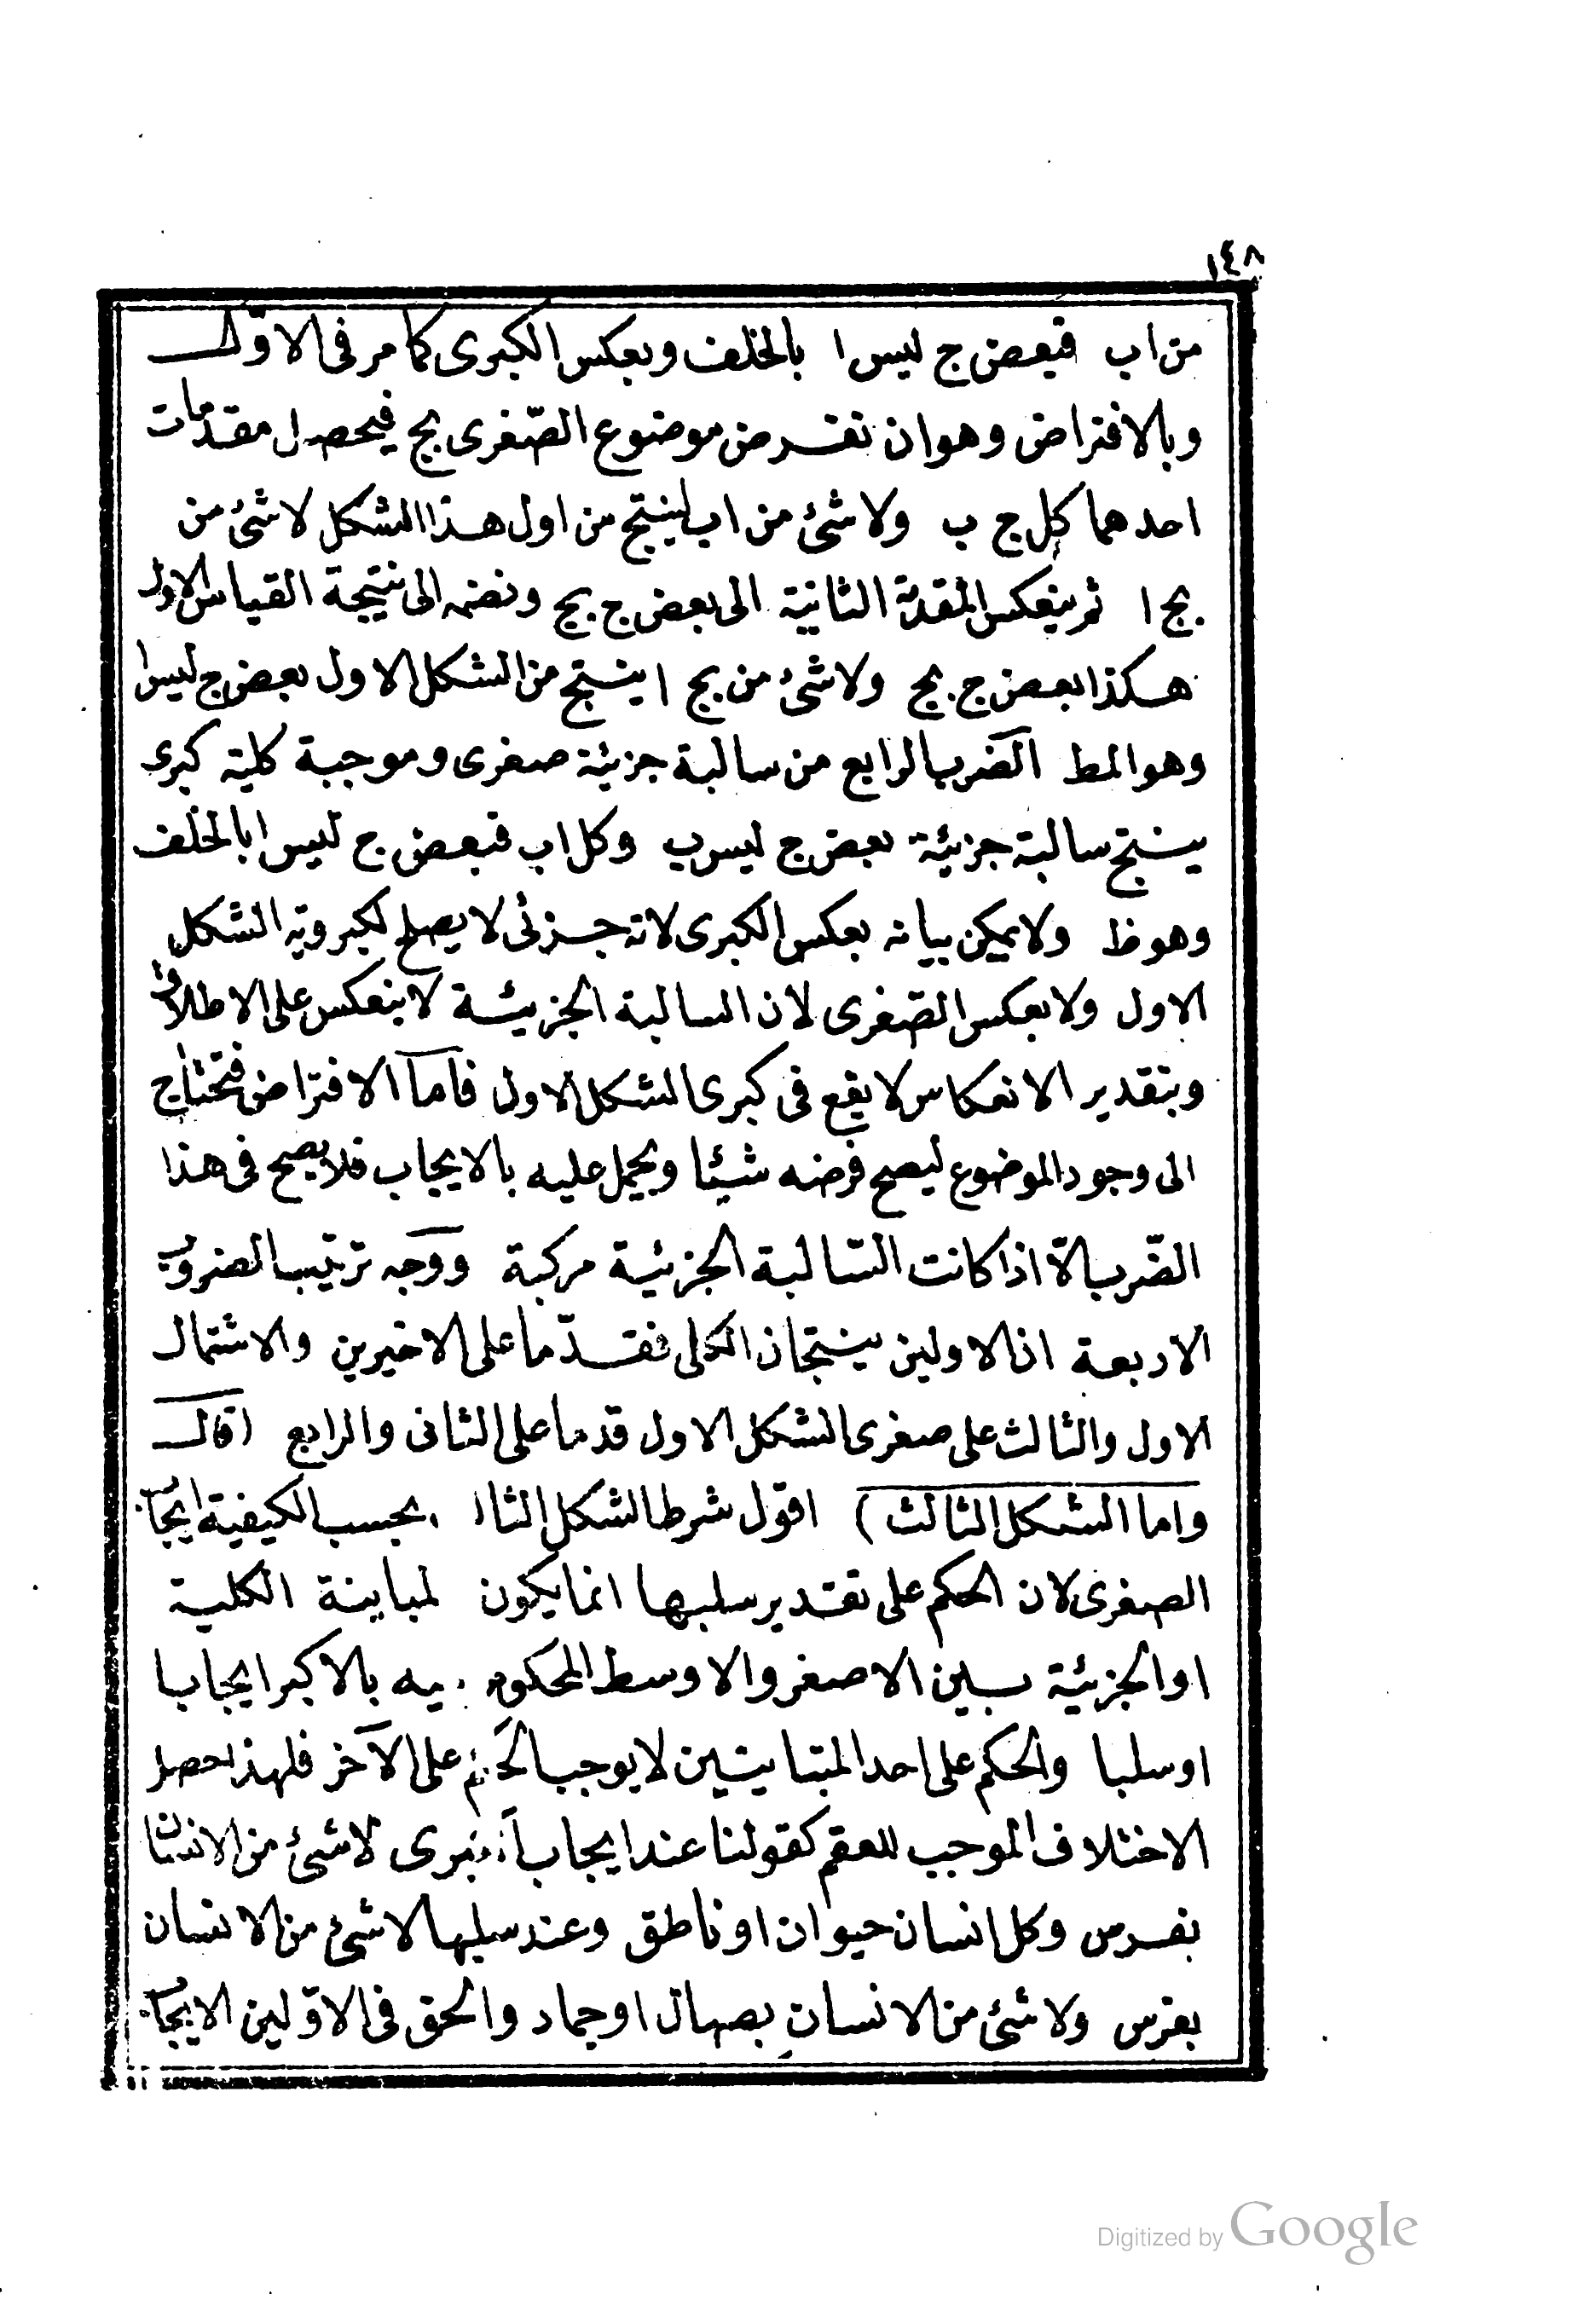 ١٤٨
من اب فبعض ج ليس ا بالخلف وبعكس الكبرى كما مر فى الاوّل
وبالافتراض وهو ان نفرض موضوع الصّغرى بج فيحصل مقدمات
احدهما كل ج ب ولا شئ من اب لينتج من اول هذا الشكل لا شئ من
بج ا ثم ينعكس المقدمة الثانية الى بعض ج بج ونضمه الى نتيجة القياس الاول
هكذا بعض ج بج ولا شئ من بج ا ينتج من الشكل الاول بعض ج ليس ا
وهو المط الضرب الرابع من سالبة جزئية صغرى وموجبة كلية كبرى
ينتج سالبة جزئية بعض ج ليس ب وكل اب فبعض ج ليس ا بالخلف
وهو ظ ولا يمكن بيانه بعكس الكبرى لانه جزئى لا يصلح لكبروية الشكل
الاول ولا بعكس الصّغرى لان السالبة الجزئية لا ينعكس على الاطلاق
وبتقدير الانعكاس لا يقع فى كبرى الشكل الاول فاما الافتراض فتحتاج
الى وجود الموضوع ليصح فرضه شيئا ويحمل عليه بالايجاب فلا يصح فى هذا
الضّرب الّا اذا كانت السّالبة الجزئية مركبة ووجه ترتيب الضروب
الاربعة ان الاولين ينتجان الكلى فقدّما على الاخيرين والاشتمال
الاول والثالث على صغرى الشكل الاول قدما على الثانى والرابع (قال
واما الشكل الثالث) اقول شرط الشكل الثا بحسب الكيفية ايجاب
الصغرى لان الحكم على تقدير سلبها انما يكون لمباينة الكلية
او الجزئية بين الاصغر والاوسط المحكوم يه بالاكبر ايجابا
او سلبا والحكم على احد المتباينين لا يوجب الحكم على الآخر فلهذا حصل
الاختلاف الموجب للعقم كقولنا عند ايجاب الكبرى لا شئ من الانسان
بفرس وكل انسان حيوان او ناطق وعند سلبها لا شئ من الانسان
بفرس ولا شئ من الانسان بصهال او جماد والحق فى الاوّلين الايجاب
Digitized by Google